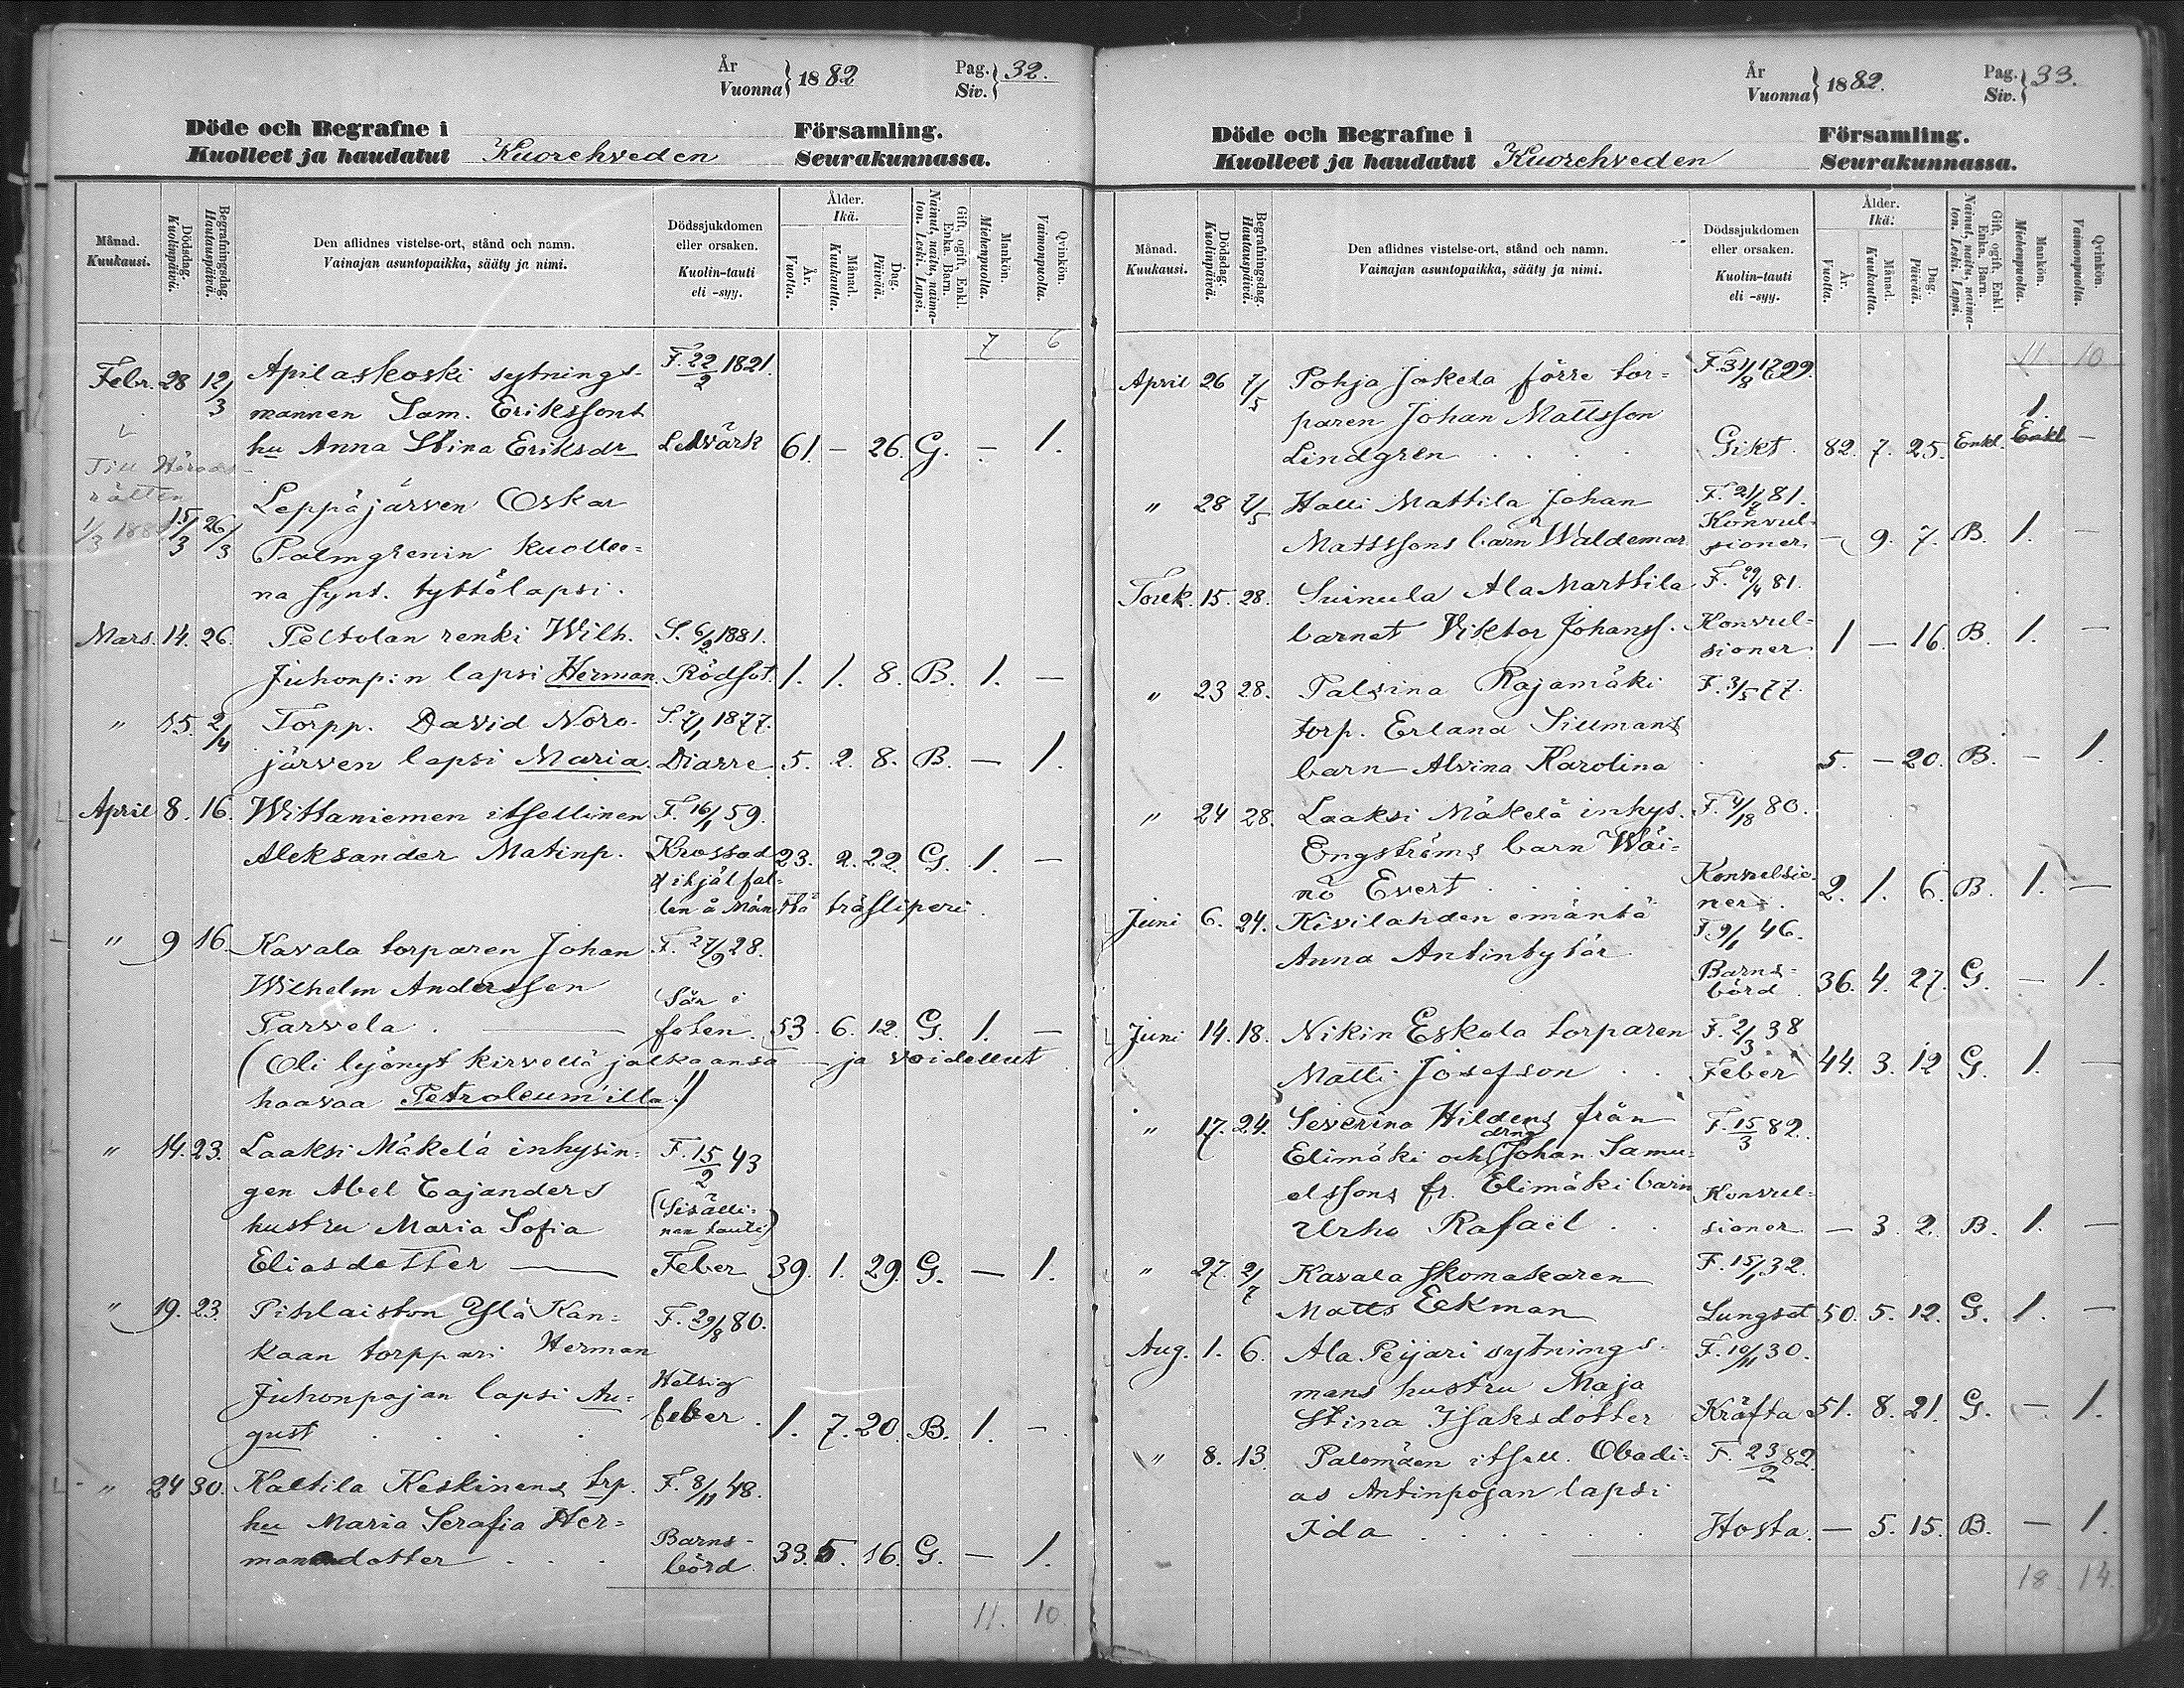 År
Vuonna } 1882
Pag.
Siv. } 32.
Döde och Begrafne i Församling.
Kuolleet ja haudatut Kuorehveden Seurakunnassa.
Månad. Kuukausi.
Dödsdag. Kuolinpäivä.
Begrafningsdag. Hautauspäivä.
Den aflidnes vistelse-ort, stånd och namn.
Vainajan asuntopaikka, sääty ja nimi.
Dödssjukdomen eller orsaken.
Kuolin-tauti eli -syy.
Ålder. Ikä.
År. Vuotta.
Månad. Kuukautta.
Dag. Päivää.
Gift, ogift, Enkl. Enka. Barn.
Nainut, naitu, naimaton. Leski. Lapsi.
Mankön. Miehenpuolta.
Qvinkön. Vaimonpuolta.
7 6
Febr. 28 12/3 Apilaskoski sytnings- F. 22/2 1821.
mannen Sam. Erikssons
hu Anna Stina Eriksdr 61. – 26. G. – 1.
Till Härads
rätten
Leppäjärven Oskar
15/3 26/3 Palmgrenin kuollee-
na synt. tyttölapsi.
Mars. 14. 26. Peltolan renki Wilh. S. 6/2 1881.
Juhonp:n lapsi Herman. Rödsot. 1. 1. 8. B. 1. –
" 15. 2/4 Torpp. David Noro- S. 7/1 1877.
järven lapsi Maria. Diarre. 5. 2. 8. B. – 1.
April 8. 16. Wittaniemen itsellinen F. 16/1 59.
Aleksander Matinp. Krossad 23. 2. 22. G. 1. –
ihjälfal-
len å Mänttä träsliperi.
" 9 16. Kavala torparen Johan F. 27/9 28.
Wilhelm Anderssen Sår i
Parvela. foten. 53. 6. 12. G. 1. –
(Oli lyönyt kirvellä jalkaansa – ja voidellut
haavaa Petroleum'illa!)
" 14. 23. Laaksi Mäkelä inhysin- F. 15/2 43
gen Abel Cajanders (Sisälli-
hustru Maria Sofia nen tauti)
Eliasdotter Feber 39. 1. 29. G. – 1.
" 19. 23. Pihlaiston Ylä Kan- F. 29/8 80.
kaan torppari Herman
Juhonpojan lapsi Au- Hetsig
gust feber. 1. 7. 20. B. 1. –
" 24 30. Kaltila Keskinens trp. F. 8/11 48.
hu Maria Serafia Her- Barns-
mansdotter börd 33. 5. 16. G. – 1.
11. 10.
År
Vuonna } 1882.
Pag.
Siv. } 33.
Döde och Begrafne i Församling.
Kuolleet ja haudatut Kuorehveden Seurakunnassa.
Månad. Kuukausi.
Dödsdag. Kuolinpäivä.
Begrafningsdag. Hautauspäivä.
Den aflidnes vistelse-ort, stånd och namn.
Vainajan asuntopaikka, sääty ja nimi.
Dödssjukdomen eller orsaken.
Kuolin-tauti eli -syy.
Ålder. Ikä.
År. Vuotta.
Månad. Kuukautta.
Dag. Päivää.
Gift, ogift, Enkl. Enka. Barn.
Nainut, naitu, naimaton. Leski. Lapsi.
Mankön. Miehenpuolta.
Qvinkön. Vaimonpuolta.
11. 10
April 26 7/5 Pohja Jokela förre tor- F. 31/8 1799.
paren Johan Mattsson 1.
Lindgren Gikt. 82. 7. 25. Enkl. –
" 28 7/5 Halli Mattila Johan F. 21/7 81.
Matssons barn Waldemar Konvulsioner – 9. 7. B. 1. –
Touk. 15. 28. Suinula Ala Marttila F. 29/4 81.
barnet Viktor Johanss. Konvul-
sioner. 1 – 16. B. 1. –
" 23 28. Palsina Rajamäki F. 3/5 77.
torp. Erland Sillmans
barn Alvina Karolina 5. – 20. B. – 1.
" 24 28. Laaksi Mäkelä inhys. F. 4/18 80.
Engströms barn Wäi-
nö Evert Konvulsio-
ner. 2. 1. 6. B. 1. –
Juni 6. 24. Kivilahden emäntä F. 9/1 46.
Anna Antintytär Barns-
börd. 36. 4. 27. G. – 1.
Juni 14. 18. Nikin Eskola torparen F. 2/3 38
Matti Josefson Feber 44. 3. 12 G. 1. –
" 17. 24. Severina Hildens från F. 15/3 82.
Elimäki och drng Johan Samu-
elssons fr. Elimäki barn Konvul-
Urho Rafaël sioner – 3. 2. B. 1. –
" 27. 2/7 Kavala skomakaren F. 15/1 32.
Matts Eekman Lungsot 50. 5. 12. G. 1. –
Aug. 1. 6. Ala Peijari sytnings- F. 10/11 30.
mans hustru Maja
Stina Isaksdotter Kräfta 51. 8. 21. G. – 1.
" 8. 13. Palomäen itsell. Obadi- F. 23/2 82.
as Antinpojan lapsi
Ida Hosta. – 5. 15. B. – 1.
18. 14.